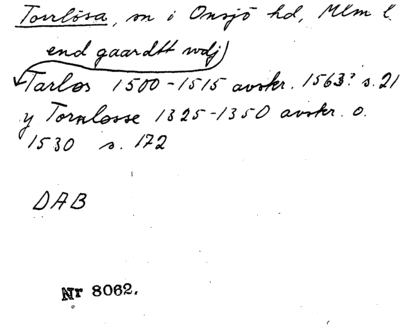 Torrlösa, sn i Onsjö hd, Mlm l.
end gaardtt wdj
Tarløs 1500-1515 avskr. 1563? s. 21
y Tornløsse 1325-1350 avskr. o.
1530 s. 172
DAB
Nr 8062.